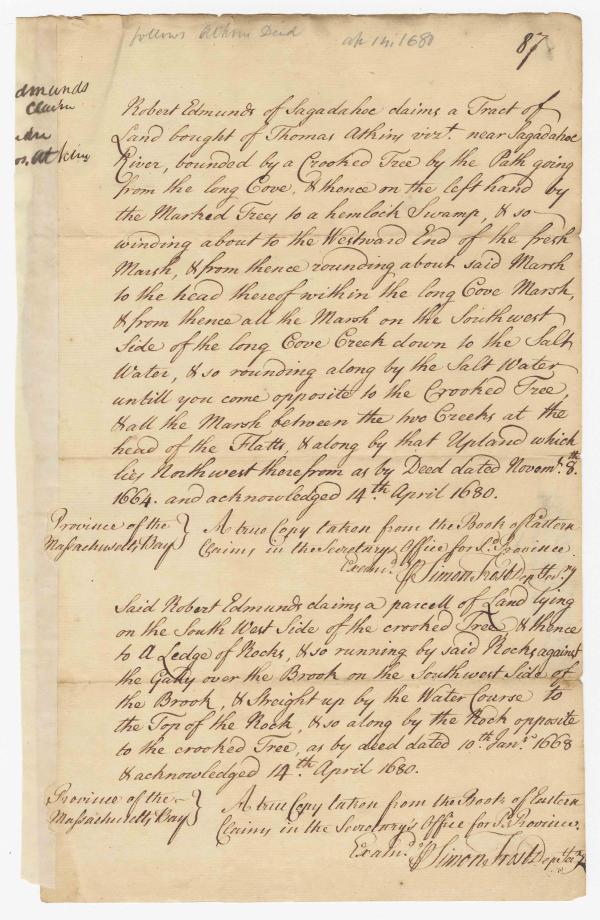 follows Atkins Deed ap 14: 1680
87
dmunds
Claim
Robert Edmunds of Sagadahoc claims a Tract of
Land bought of Thomas Atkins vizt. near Sagadahoc
River, bounded by a Crooked Tree by the Path going
from the long Cove, & thence on the left hand by
the Marked Trees to a hemlock Swamp, & so
winding about to the Westward End of the fresh
Marsh, & from thence rounding about said Marsh
to the head thereof within the long Cove Marsh,
& from thence all the Marsh on the Southwest
Side of the long Cove Creek down to the Salt
Water, & so rounding along by the Salt Water
untill you come opposite to the Crooked Tree,
& all the Marsh between the two Creeks at the
head of the Flatts, & along by that Upland which
lies Northwest therefrom as by Deed dated Novemr. 8th.
1664. and acknowledged 14th April 1680.
Province of the } A true Copy taken from the Book of Eastern
Massachusetts Bay } Claims in the Secretary's Office for Sd. Province.
Examd. P Simon Frost Dep Secry
Said Robert Edmunds claims a parcell of Land lying
on the South West Side of the crooked Tree, & thence
to A Ledge of Rocks, & so running by said Rocks against
the Gully over the Brook on the Southwest Side of
the Brook, & Streight up by the Water Course to
the Top of the Rock, & so along by the Rock opposite
to the crooked Tree, as by deed dated 10th. Janr. 1668
& acknowledged 14th. April 1680.
Province of the } A true Copy taken from the Book of Eastern
Massachusetts Bay } Claims in the Secretary's Office for Sd. Province.
Examd. P Simon Frost Dep Secry